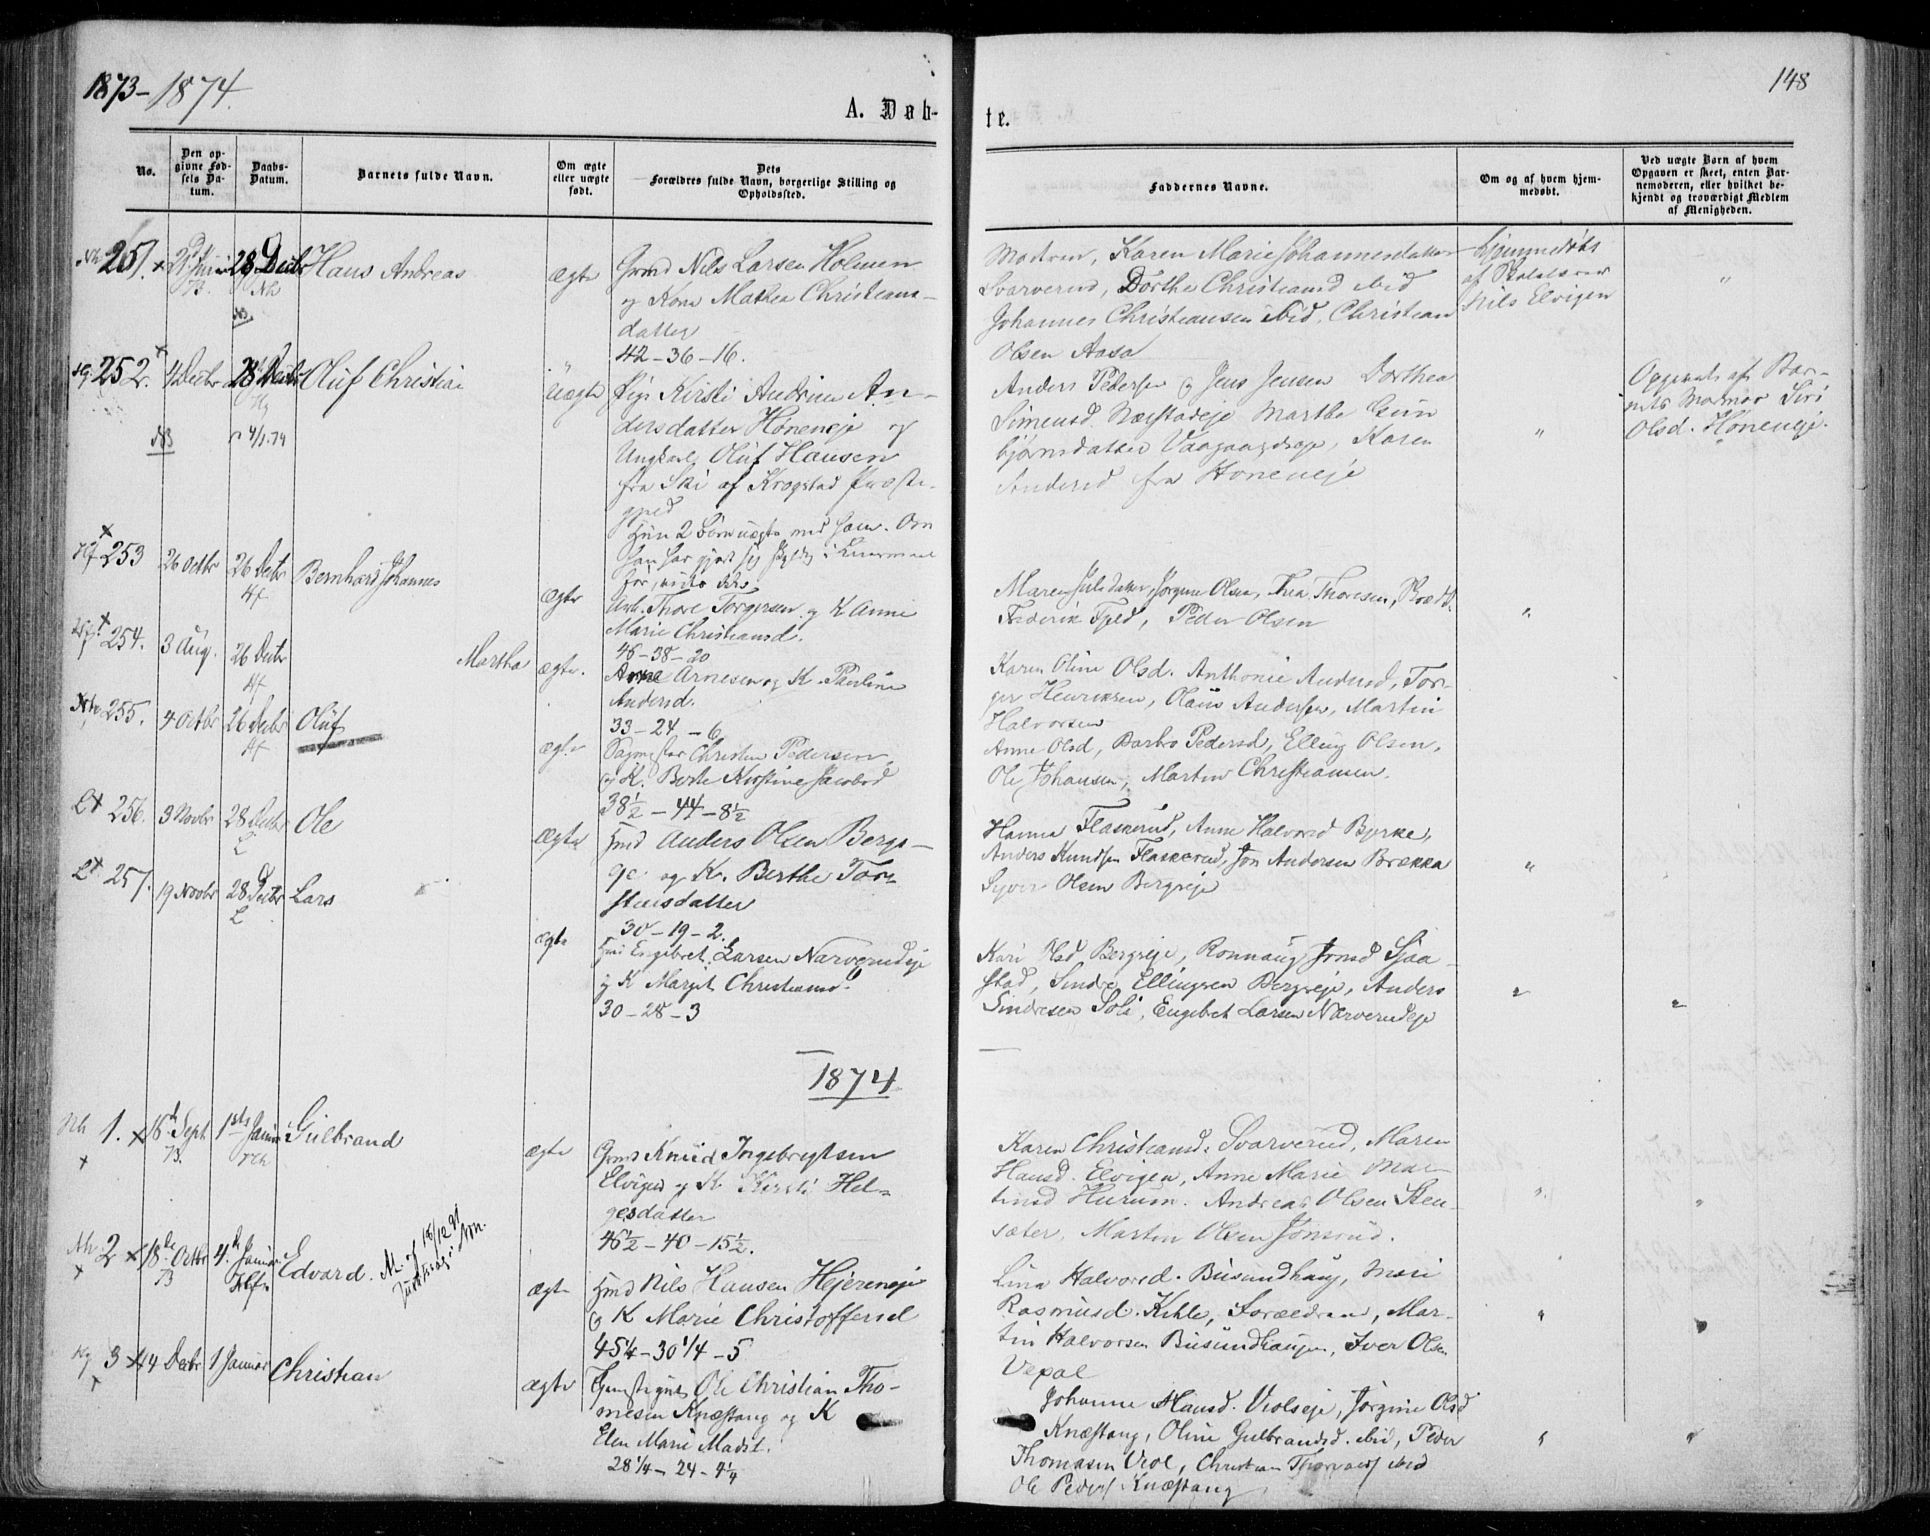 1873-1874.
148
A. Døb-
te.
No.
Den op-
givne Fød-
sels Da-
tum.
Daabs-
Datum.
Barnets fulde Navn.
Om ægte
eller uægte
født.
Dets
Forældres fulde Navn, borgerlige Stilling og
Opholdssted.
Faddernes Navne.
Om og af hvem hjem-
medøbt.
Ved uægte Børn af hvem
Opgaven er skeet, enten Bar-
nemoderen, eller hvilket be-
kjendt og troværdigt Medlem
af Menigheden.
251. 28 Decbr Hans Andreas
Nh
ægte
Nils Larsen Holmen
og Kone Mathea Christians-
datter
42-36-16.
Modren, Karen Marie Johannesdatter
Svarverud, Dorthe Christiansd ibid
Johannes Christiansen ibid, Christian
Olsen Aasa
Hjemmedøbt
af
Nils Elvigen
"
252. 4 Decbr 28 Decbr Oluf Christian
Hg
4/1.74
NB
uægte
Pige Kirsti Andrine An-
dersdatter Høneneje og
Ungkarl Oluf Hansen
fra Ski af Krogstad Præste-
gjed
Hun 2 Børn uægte med ham. Om
han har gjort sig skyldig i Leiermaal
før, vides ikke
Anders Pedersen og Jens Jensen Dorthea
Simensd. Næstadeje Marthe Gun
bjørnsdatter Karen
Andersd fra Høneneje
"
Opgivet af Bar-
nets Mormor Siri
Olsd. Høneneje.
253 26 Octbr 26 Decbr Bernhard Johannes
Hf
ægte
Arb. Thore Torgersen og K Anne
Marie Christiansd.
46-38-20
Maren Juls datter, Jørgine Olsen, Thea Thoresen,
Frederik Fjeld, Peder Olsen
"
254. 3 Aug. 26 Decbr Martha
Hf
ægte.
Arne Arnesen og K. Pauline
Andersd.
33-24-6
Karen Oline Olsd. Anthonie Andersd, Tor-
ger Henriksen, Olaus Andersen, Martin
Halvorsen
255. 4 Octbr 26 Decbr Oluf
Hf
ægte
Sagmester Christen Pedersen
og K. Berte Kirstine Jacobsd
38½-44-8½
Anne Olsd, Barbro Pedersd, Elling Olsen,
Ole Johansen, Martin Christiansen.
256. 3 Novbr 28 Decbr Ole
L
ægte
Hmd Anders Olsen Bergs-
ge og K. Berthe Tor-
stensdatter
30-19-2.
Hanna Flaskerud, Anne Halvorsd Byrke,
Anders Knudsen Flaskerud, Jon Andersen Brække
Syver Olsen Bergseje
"
257. 19 Novbr 28 Decbr Lars
L
ægte
Hmd Engebret Larsen Narverudeje
og K Margit Christiansd.
30-28-3
Kari Olsd Bergseje, Rønnaug Jonsd Sjaa-
stad, Sindre Ellingsen Bergseje, Anders
Sindresen Soli, Engebret Larsen Narverudeje
"
"
1874
1. 16 Sept 1ste Januar Gulbrand
73.
ægte
Gmd Knud Ingebrigtsen
Elvigen og K Kirsti Hel-
gesdatter
46½-40-15½.
Karen Christiansd. Svarverud, Maren
Hansd. Elvigen, Anne Marie Mar-
tinsd Hurum. Andreas Olsen Sten-
sæter, Martin Olsen Jonsrud.
"
"
2 18de Octbr 4de Januar Edvard.
73
ægte
Hmd Nils Hansen Hejereneje
og K Marie Christoffersd
45¼-30¼-5
Lina Halvorsd. Busundhaug, Mari
Rasmusd. Kihle, Forældrene, Mar-
tin Halvorsen Busundhaugen, Iver Olsen
Vepal
"
3 14 Decbr 1 Januar Christian
ægte
Ole Christian Tho-
mesen Knæstang og K
Elen Marie Madst.
28¼-24-4¼
Johanne Hansd. Violseje, Jørgine Olsd
Knæstang, Oline Gulbrandsd. ibid, Peder
Thomasen Viol, Christian ibid
Ole Peders Knæstang
"
"